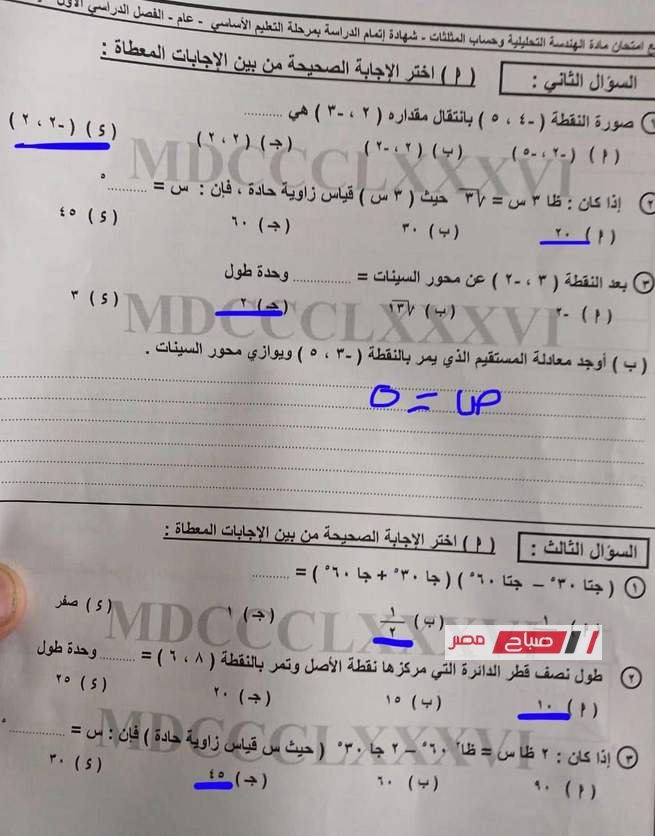 ع امتحان مادة الهندسة التحليلية وحساب المثلثات - شهادة إتمام الدراسة بمرحلة التعليم الأساسي - عام - الفصل الدراسي الأول
السؤال الثاني : ( ٢ ) اختر الإجابة الصحيحة من بين الإجابات المعطاة :
١ صورة النقطة ( -٤ ، ٥ ) بانتقال مقداره ( ٢ ، -٣ ) هي ..........
( ٢ ) ( -٢ ، -٥ ) ( ب ) ( ٢ ، -٢ ) ( جـ ) ( ٢ ، ٢ ) ( ٤ ) ( -٢ ، ٢ )
٢ إذا كان : ظا ٣ س = √٣ حيث ( ٣ س ) قياس زاوية حادة ، فإن : س = ..........°
( ٢ ) ٢٠ ( ب ) ٣٠ ( جـ ) ٦٠ ( ٤ ) ٤٥
٣ بعد النقطة ( ٣ ، -٢ ) عن محور السينات = .............. وحدة طول
( ٢ ) -٢ ( ب ) √١٣ ( جـ ) ٢ ( ٤ ) ٣
( ب ) أوجد معادلة المستقيم الذي يمر بالنقطة ( -٣ ، ٥ ) ويوازي محور السينات .
ص = ٥
السؤال الثالث : ( ٢ ) اختر الإجابة الصحيحة من بين الإجابات المعطاة :
١ ( جتا ٣٠° - جتا ٦٠° ) ( جا ٣٠° + جا ٦٠° ) = ..........
( ب ) ١/٢ ( جـ ) ١ ( ٤ ) صفر
صباح مصر
٢ طول نصف قطر الدائرة التي مركزها نقطة الأصل وتمر بالنقطة ( ٨ ، ٦ ) = .......... وحدة طول
( ٢ ) ١٠ ( ب ) ١٥ ( جـ ) ٢٠ ( ٤ ) ٢٥
٣ إذا كان : ٢ ظا س = ظا² ٦٠° - ٢ جا ٣٠° ( حيث س قياس زاوية حادة ) فإن : س = ..............°
( ٢ ) ٩٠ ( ب ) ٦٠ ( جـ ) ٤٥ ( ٤ ) ٣٠
MDCCCLXXXVI
MDCCCLXXXVI
MDCCCLXXXVI
MDCCCLXXXVI